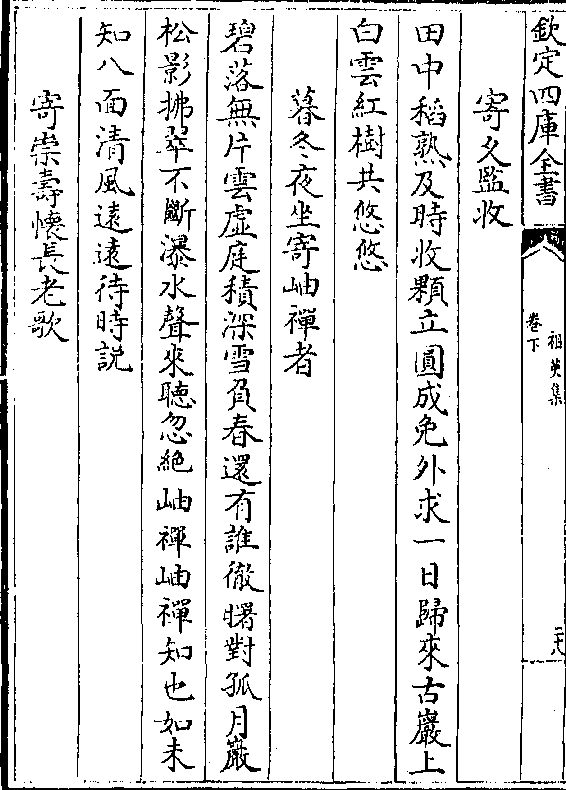 欽定四庫全書
祖英集
卷下
二十八
寄文監收
田中稻熟及時收顆立圓成免外求一日歸來古巖上
白雲紅樹共悠悠
暮冬夜坐寄岫禪者
碧落無片雲虛庭積深雪負春還有誰徹曙對孤月巖
松影拂翠不斷瀑水聲來聽忽絶岫禪岫禪知也如未
知八面清風遠遠待時説
寄崇壽懷長老歌